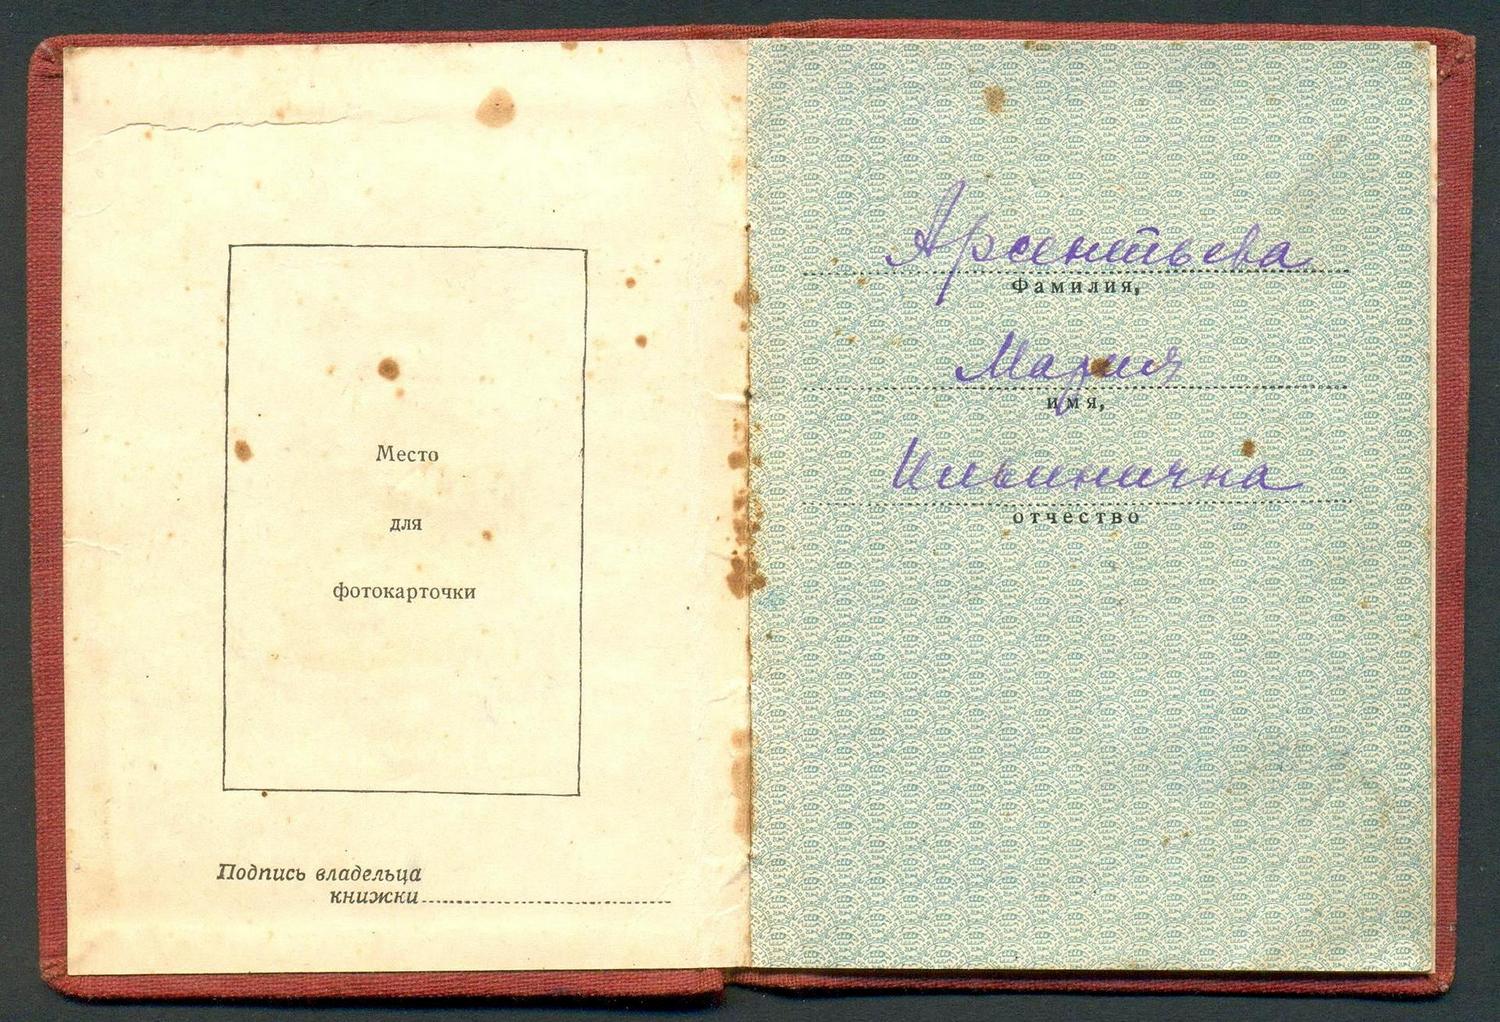 Место
для
фотокарточки
Подпись владельца
книжки
Арсентьева
Фамилия,
Мария
имя,
Ильинична
отчество